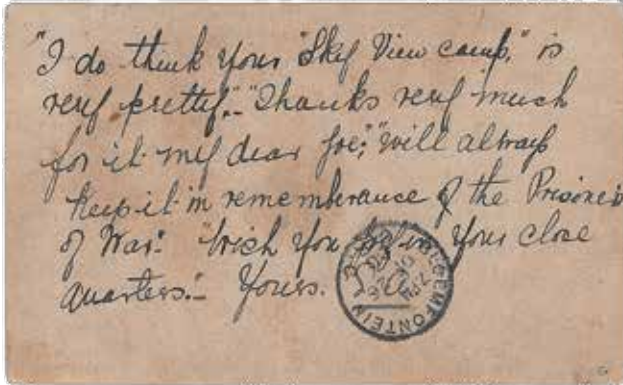 "I do think your "Sky View camp," is
very pretty." "Thanks very much
for it my dear Joe;" "will always
keep it in rememberance of the Prisoners
of War." "wish you in your close
quarters." Yours.
BLOEMFONTEIN